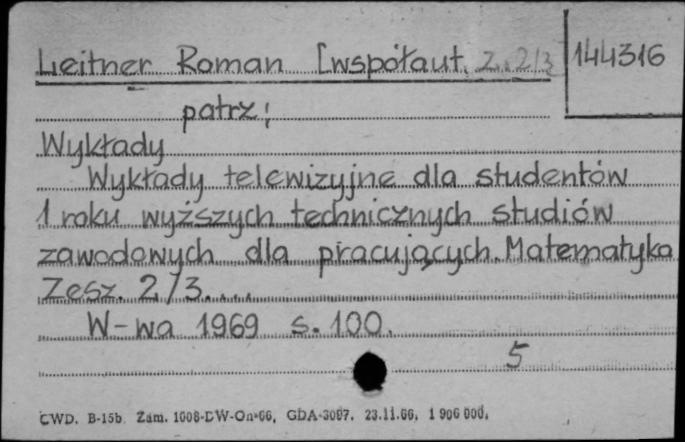 Leitner Roman [współaut. Z. 2/3
144316
patrz:
Wykłady
Wykłady telewizyjne dla studentów
1 roku wyższych technicznych studiów
zawodowych dla pracujących. Matematyka
Zesz. 2/3....
W-wa 1969 s. 100.
5
CWD. B-15b. Zam. 1008-DW-On-66, GDA-3097. 23.11.66. 1 906 000.